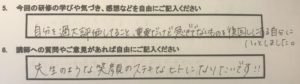 5. 今回の研修の学びや気づき、感想などを自由にご記入ください
自分を過大評価してること、重要だけど急ぎでないものを後回しにする自分に
いっとしました。
6. 講師への質問やご意見があれば自由にご記入ください
先生のような笑顔のステキなヒトになりたいです!!